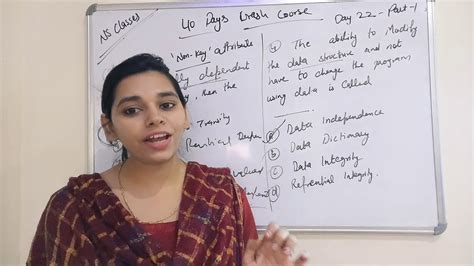 NS Classes
40 Days Crash Course
Day 22 - Part-1
'Non-key' attribute
dependent
then the
Transity
(4) The ability to Modify
the data structure and not
have to change the program
using data is called
(a) Data Independence
(b) Data Dictionary
(c) Data Integrity
(d) Refrential Integrity.